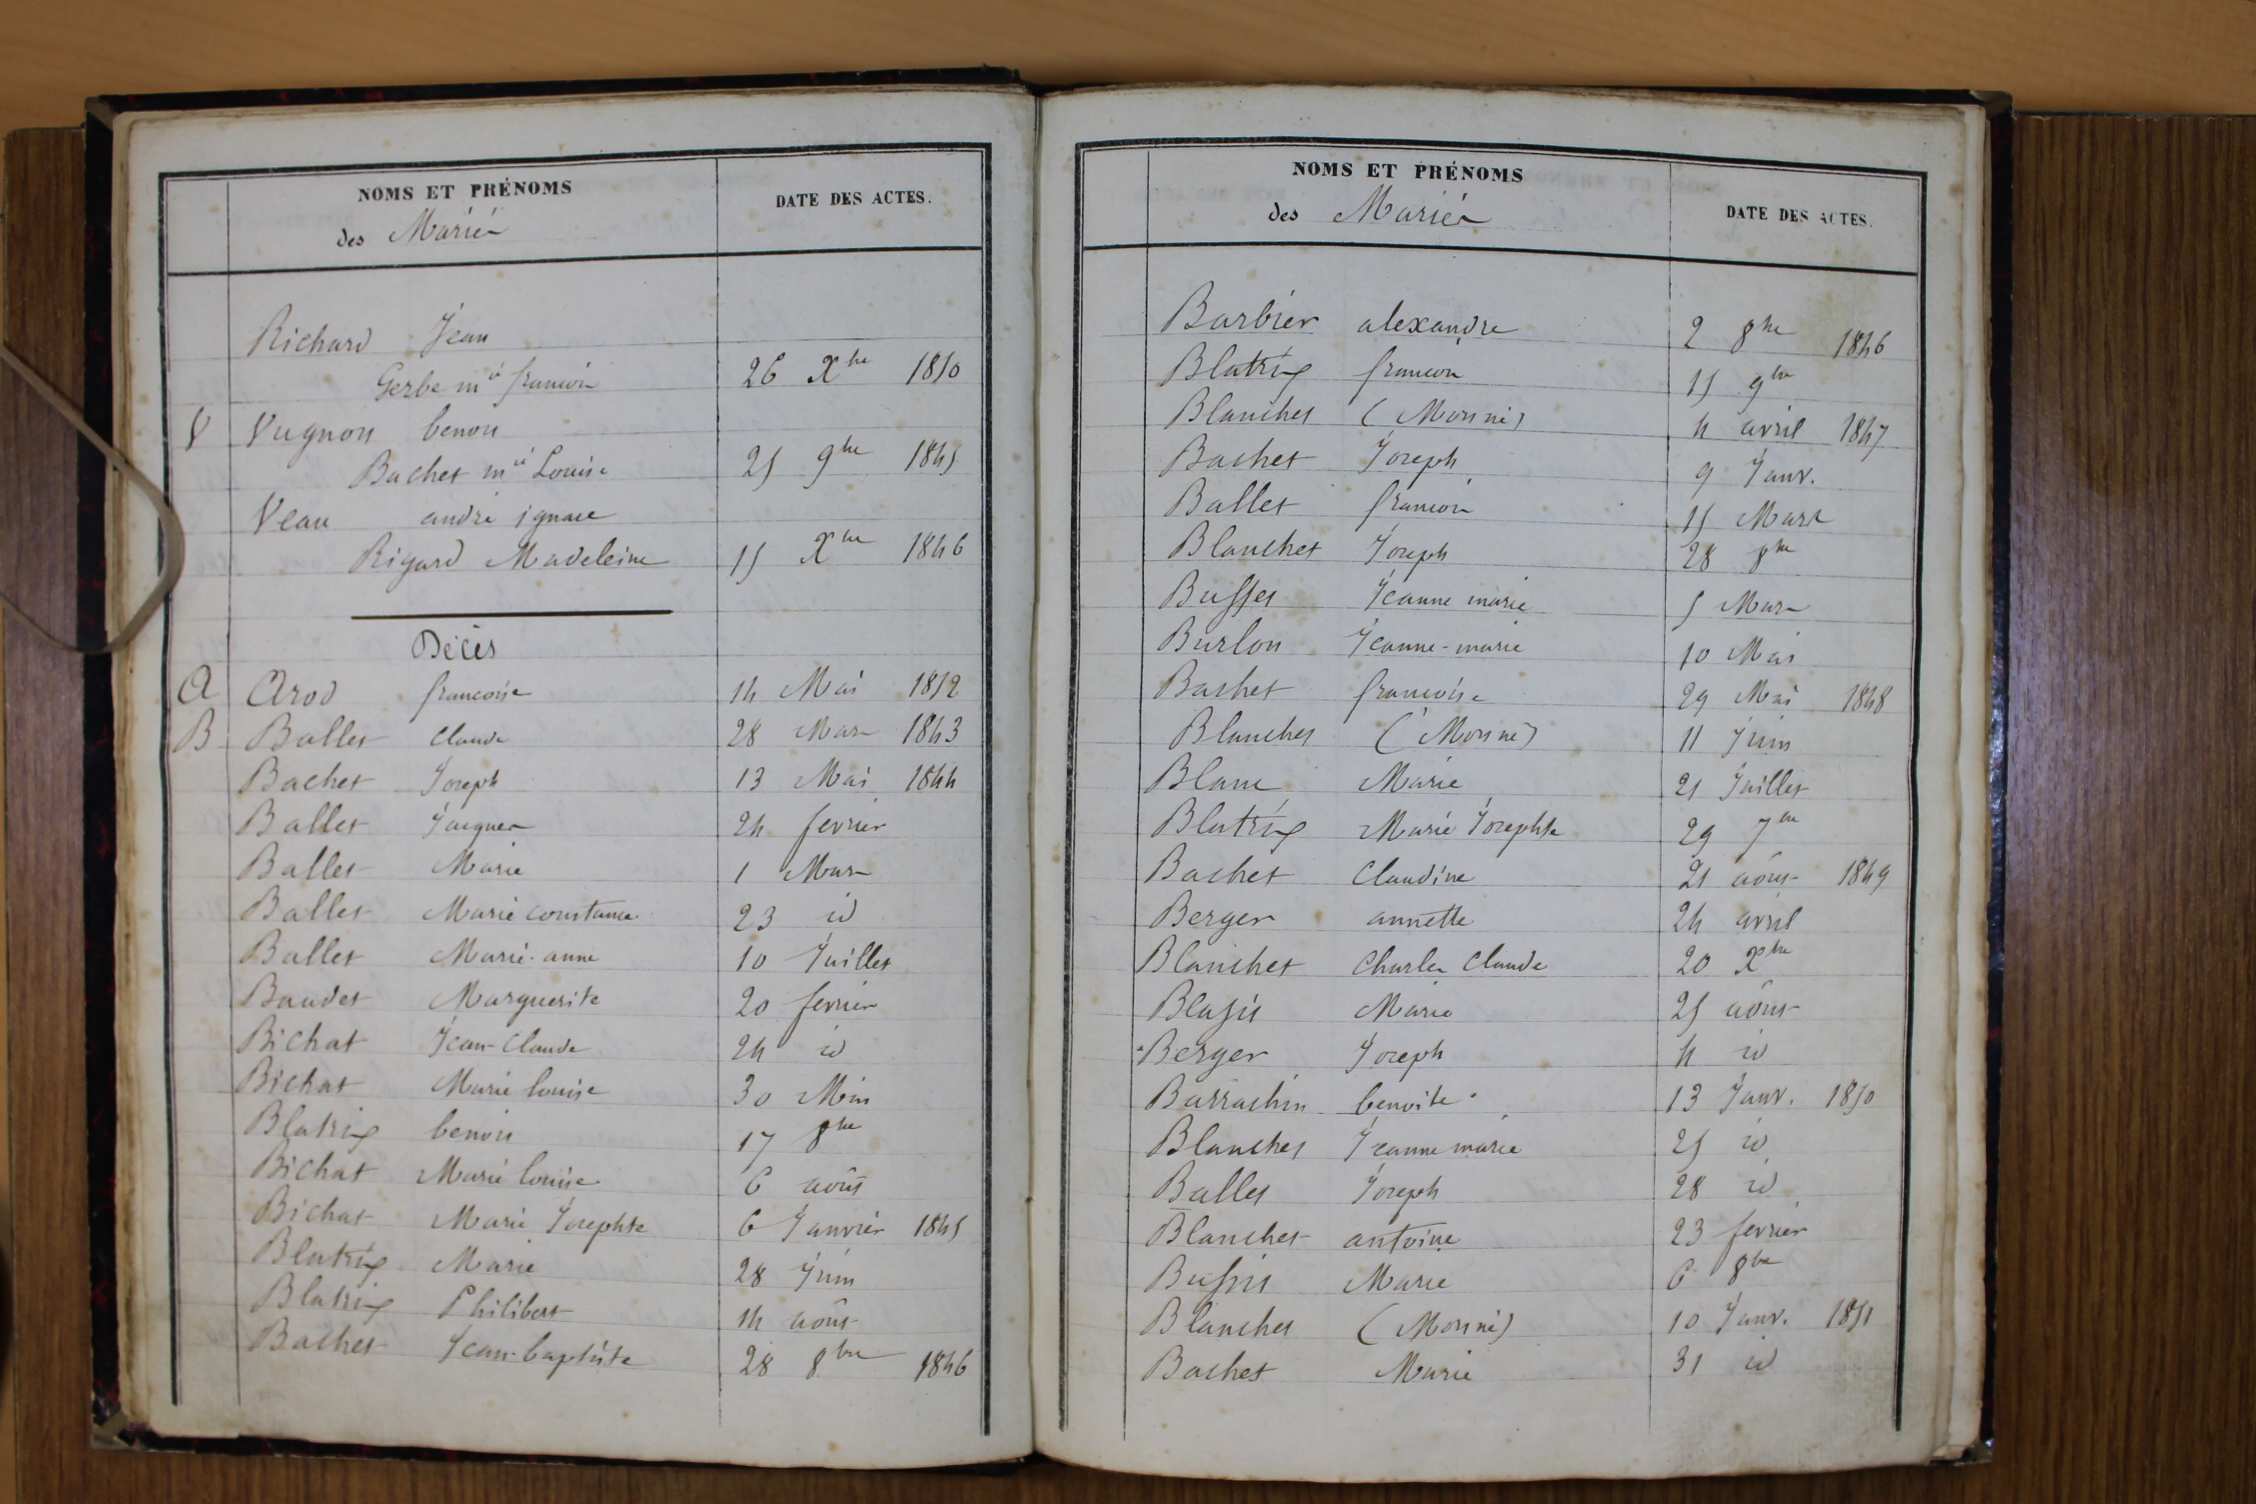 NOMS ET PRÉNOMS DATE DES ACTES.
des Mariés
Richard Jean
Gerbe mie françoise 26 Xbre 1850
V Vugnon benoit
Bachet mie Louise 25 9bre 1845
Veau andré ignace
Rigard Madeleine 15 Xbre 1846
Décès
A Arod françoise 14 Mai 1852
B Ballet Claude 28 Mars 1843
Bachet Joseph 13 Mai 1844
Ballet Jacques 24 fevrier
Ballet Marie 1 Mars
Ballet Marie constance 23 id
Ballet Marie-anne 10 Juillet
Baudet Marguerite 20 fevrier
Bichat Jean-Claude 24 id
Bichat Marie louise 30 Mai
Blatrix benoit 17 8bre
Bichat Marie louise 6 août
Bichat Marie Josephte 6 Janvier 1845
Blatrix Marie 28 Juin
Blatrix Philibert 14 août
Bachet Jean-baptiste 28 8bre 1846
NOMS ET PRÉNOMS DATE DES ACTES.
des Mariés
Barbier alexandre 2 8bre 1846
Blatrix françois 15 9bre
Blanchet (Mort né) 4 avril 1847
Bachet Joseph 9 Janv.
Ballet françois 15 Mars
Blanchet Joseph 28 8bre
Buffet Jeanne marie 5 Mars
Burlon Jeanne-marie 10 Mai
Bachet françoise 29 Mai 1848
Blanchet (Mort né) 11 Juin
Blanc Marie 21 Juillet
Blatrix Marie Josephte 29 7bre
Bachet Claudine 21 août 1849
Berger annette 24 avril
Blanchet Charles Claude 20 Xbre
Marie 25 août
Berger Joseph 4 id
Barrachin benoite 13 Janv. 1850
Blanchet Jeanne marie 25 id
Ballet Joseph 28 id
Blanchet antoine 23 fevrier
Marie 6 8bre
Blanchet (Mort né) 10 Janv. 1851
Bachet Marie 31 id